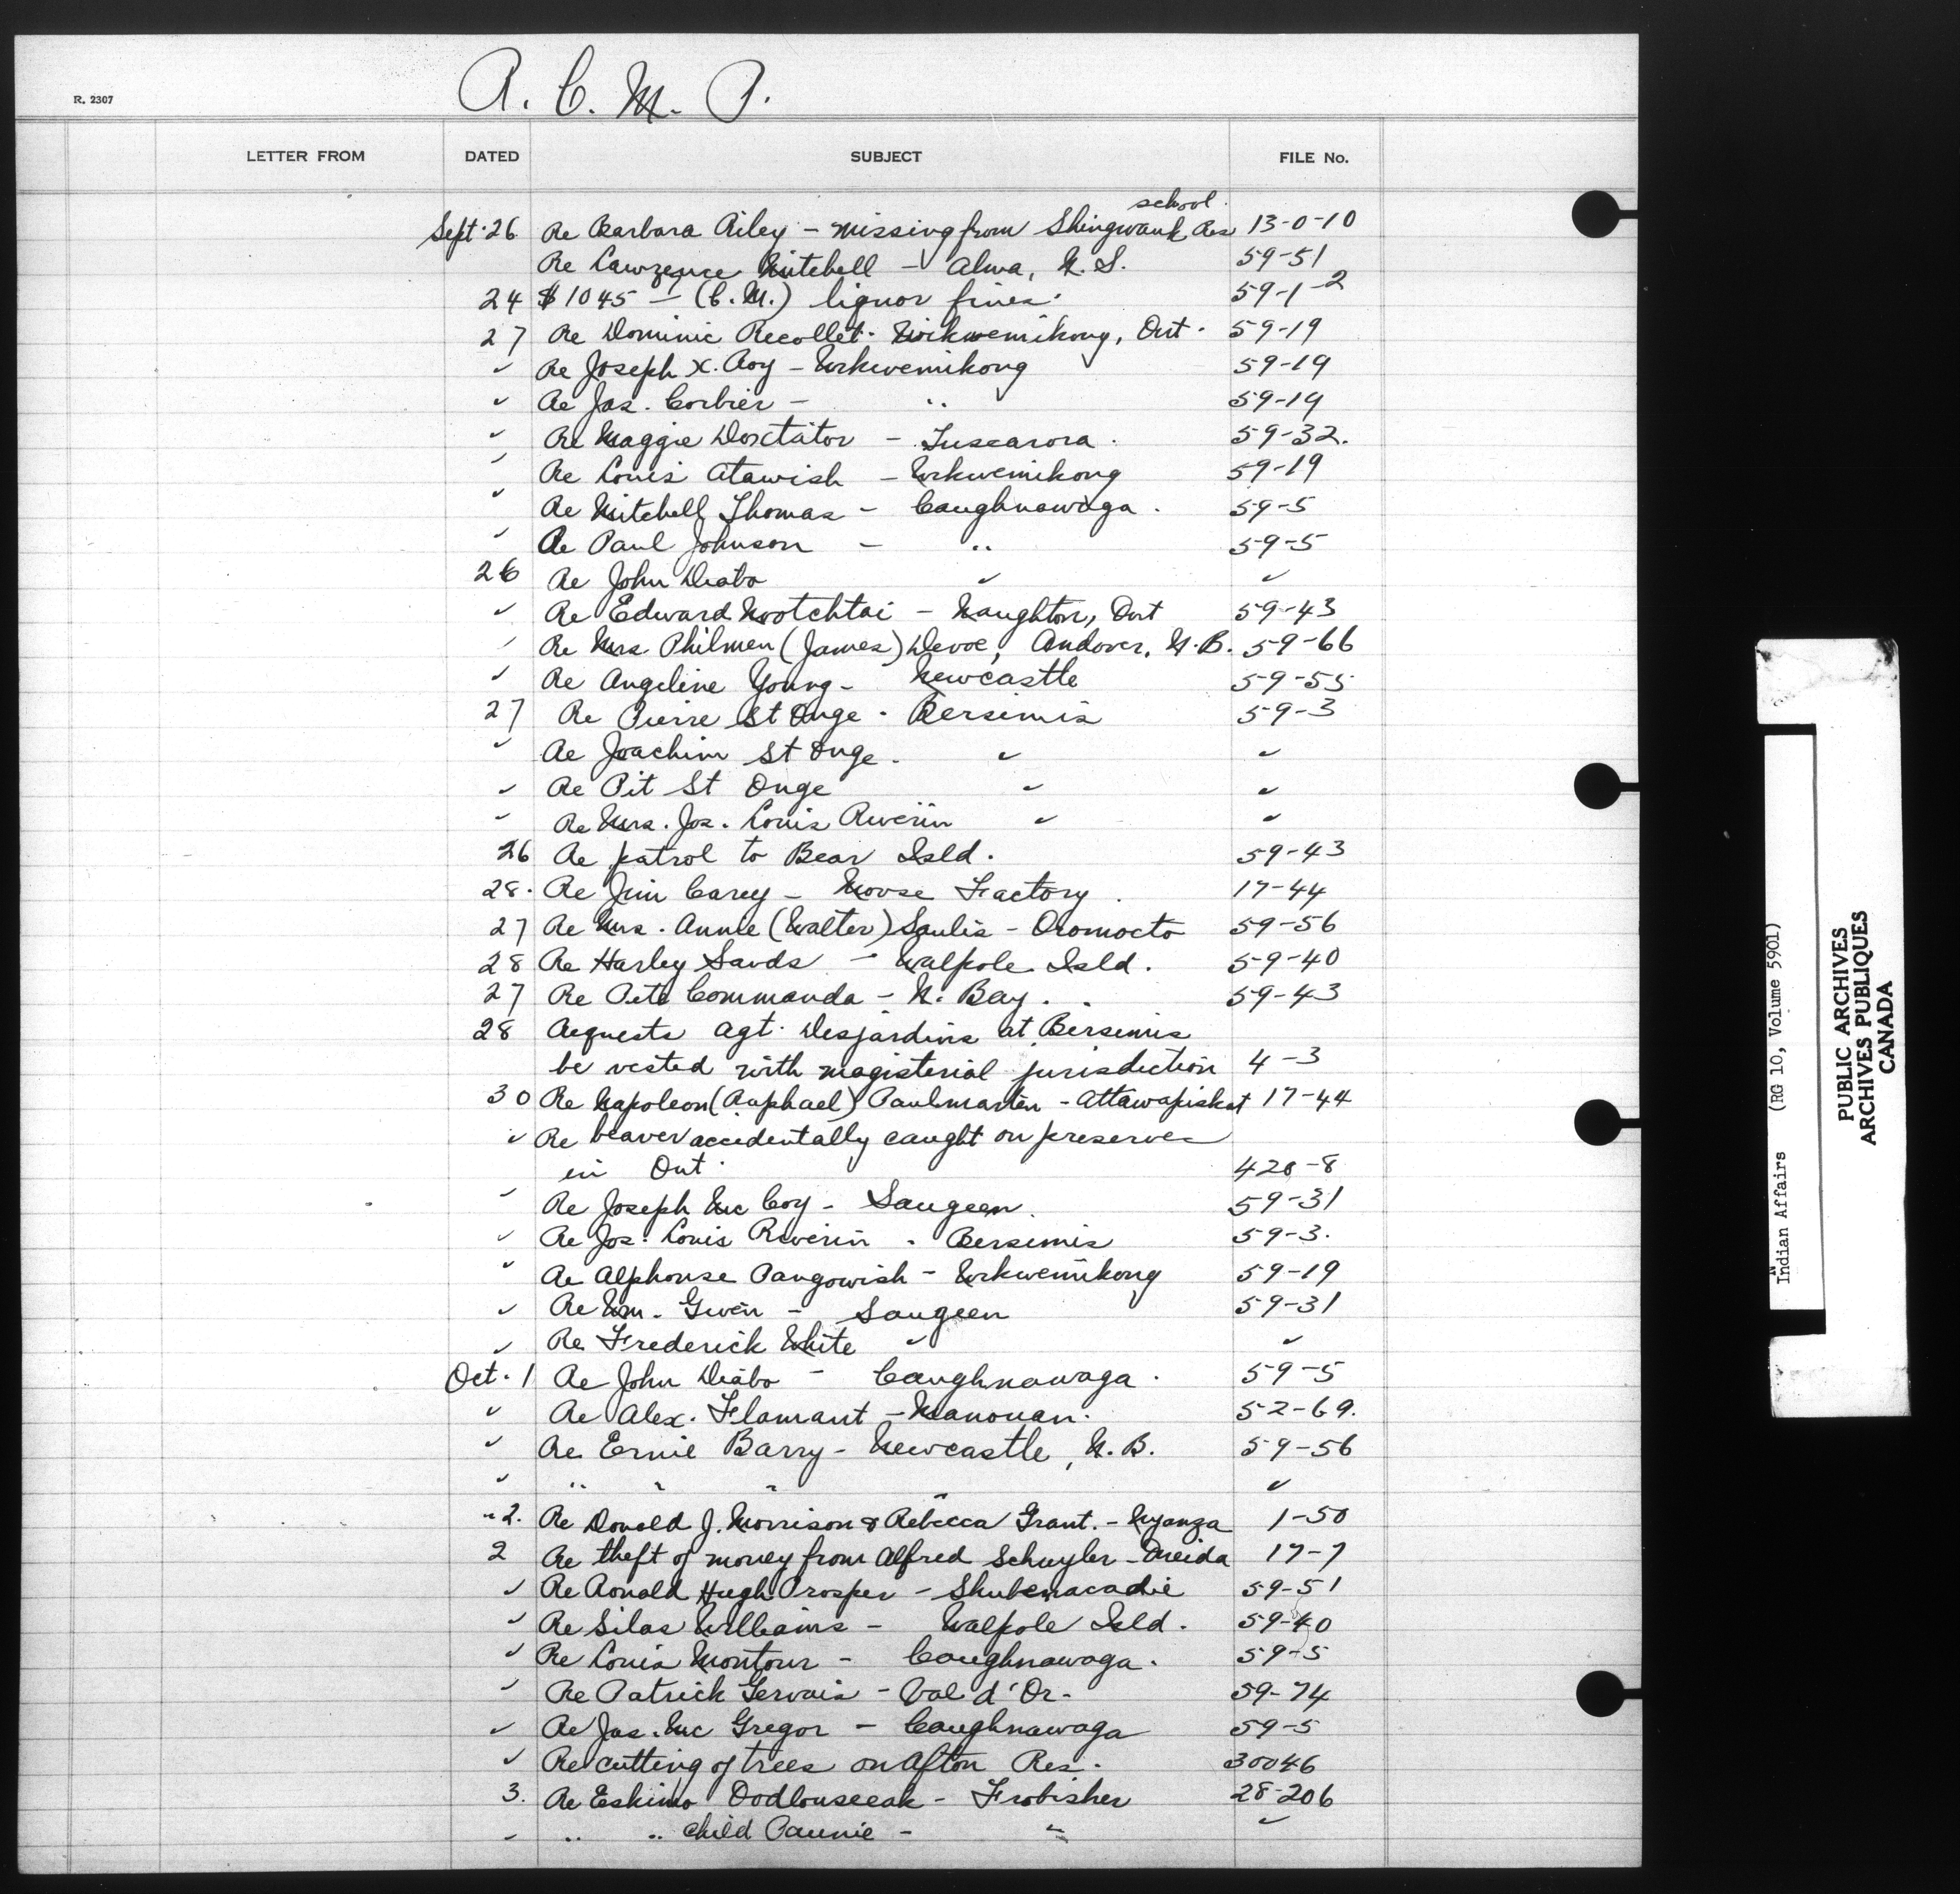 R. 2307
R. C. M. P.
LETTER FROM DATED SUBJECT FILE No.
school
Sept. 26 Re Barbara Riley - missing from Shingwauk Res 13-0-10
Re Lawrence Mitchell - Alma, N.S. 59-51
24 $1045 - (C.M.) liquor fines. 59-1-2
27 Re Dominic Recollet - Wikwemikong, Ont. 59-19
✓ Re Joseph X. Roy - Wikwemikong 59-19
✓ Re Jas. Corbier - " 59-19
✓ Re Maggie Doxtator - Tuscarora. 59-32.
✓ Re Louis Atawish - Wikwemikong 59-19
✓ Re Mitchell Thomas - Caughnawaga. 59-5
✓ Re Paul Johnson - " 59-5
26 Re John Diabo ✓ ✓
✓ Re Edward Nootchtai - Naughton, Ont 59-43
✓ Re Mrs Philmen (James) Devoe, Andover, N.B. 59-66
✓ Re Angeline Young - Newcastle 59-55
27 Re Pierre St Onge - Bersimis 59-3
✓ Re Joachim St Onge. ✓ ✓
✓ Re Pit St Onge ✓ ✓
✓ Re Mrs. Jos. Louis Riverin ✓ ✓
26 Re patrol to Bear Isld. 59-43
28. Re Jim Carey - Moose Factory. 17-44
27 Re Mrs. Annie (Walter) Saulis - Oromocto 59-56
28 Re Harley Sands - Walpole Isld. 59-40
27 Re Pete Commanda - N. Bay. 59-43
28 Requests agt. Desjardins at Bersimis
be vested with magisterial jurisdiction 4-3
30 Re Napoleon (Raphael) Paulmartin - Attawapiskat 17-44
✓ Re beaver accidentally caught on preserves
in Ont. 420-8
✓ Re Joseph Mc Coy - Saugeen. 59-31
✓ Re Jos. Louis Riverin - Bersimis 59-3.
✓ Re Alphonse Pangowish - Wikwemikong 59-19
✓ Re Wm. Gwen - Saugeen 59-31
✓ Re Frederick White ✓ ✓
Oct. 1 Re John Diabo - Caughnawaga. 59-5
✓ Re Alex. Flamant - Manouan. 52-69.
✓ Re Ernie Barry - Newcastle, N.B. 59-56
✓ " " " " ✓
" 2. Re Donald J. Morrison & Rebecca Grant. - Nyanza 1-50
2 Re theft of money from Alfred Schuyler - Oneida 17-7
✓ Re Ronald Hugh Prosper - Shubenacadie 59-51
✓ Re Silas Williams - Walpole Isld. 59-40
✓ Re Louis Montour - Caughnawaga. 59-5
✓ Re Patrick Gervais - Val d'Or. 59-74
✓ Re Jas. Mc Gregor - Caughnawaga 59-5
✓ Re cutting of trees on Afton Res. 30046
3. Re Eskimo Oodlouseeak - Frobisher 28-206
✓ " " child Paunie - " ✓
Indian Affairs (RG 10, Volume 5901)
PUBLIC ARCHIVES
ARCHIVES PUBLIQUES
CANADA